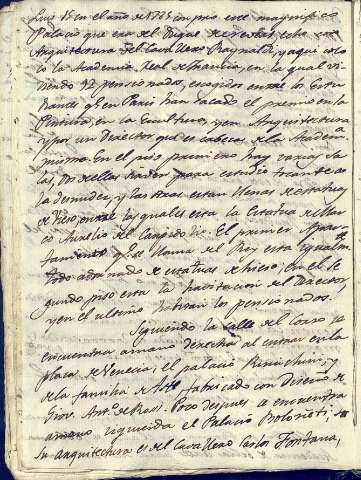 Luis 15 en el año de 1725 compró este magnifico
Palacio que era del Duque de Nevers, hecho con
Arquitectura del Cavallero Raynaldi, y aqui colo
cò la Academia Real de Francia, en la qual vi
viendo 12 pensionados, escogidos entre los Estu
diantes qe en Paris han sacado el premio en la
Pintura, en la Escultura, y en Arquitectura
y por un Director que es cabeza de la Academia
misma. En el piso primero hay varias Sa
las, dos de ellas sirven para estudio tocante a
la desnudez, y las otras estan llenas de estatuas
de Yeso, entre las quales esta la Estatua de Mar
co Aurelio del Campidolio. El primer Apar
tamento qe se llama del Rey esta igualmte
todo adornado de estatuas de hieso; en el se
gundo piso està la havitacion del Director,
y en el ultimo havitan los pensionados.
Siguiendo la calle del Corso se
encuentra à mano derecha al entrar en la
plaza de Venecia, el palacio Rinuchini, y
de la familia de Aste fabricado con Diseño de
Giov. Anto. de Rossi. Poco despues se encuentra
à mano izquierda el Palacio Bolognetti; su
su Arquitectura es del Cavallero Carlos Fontana,